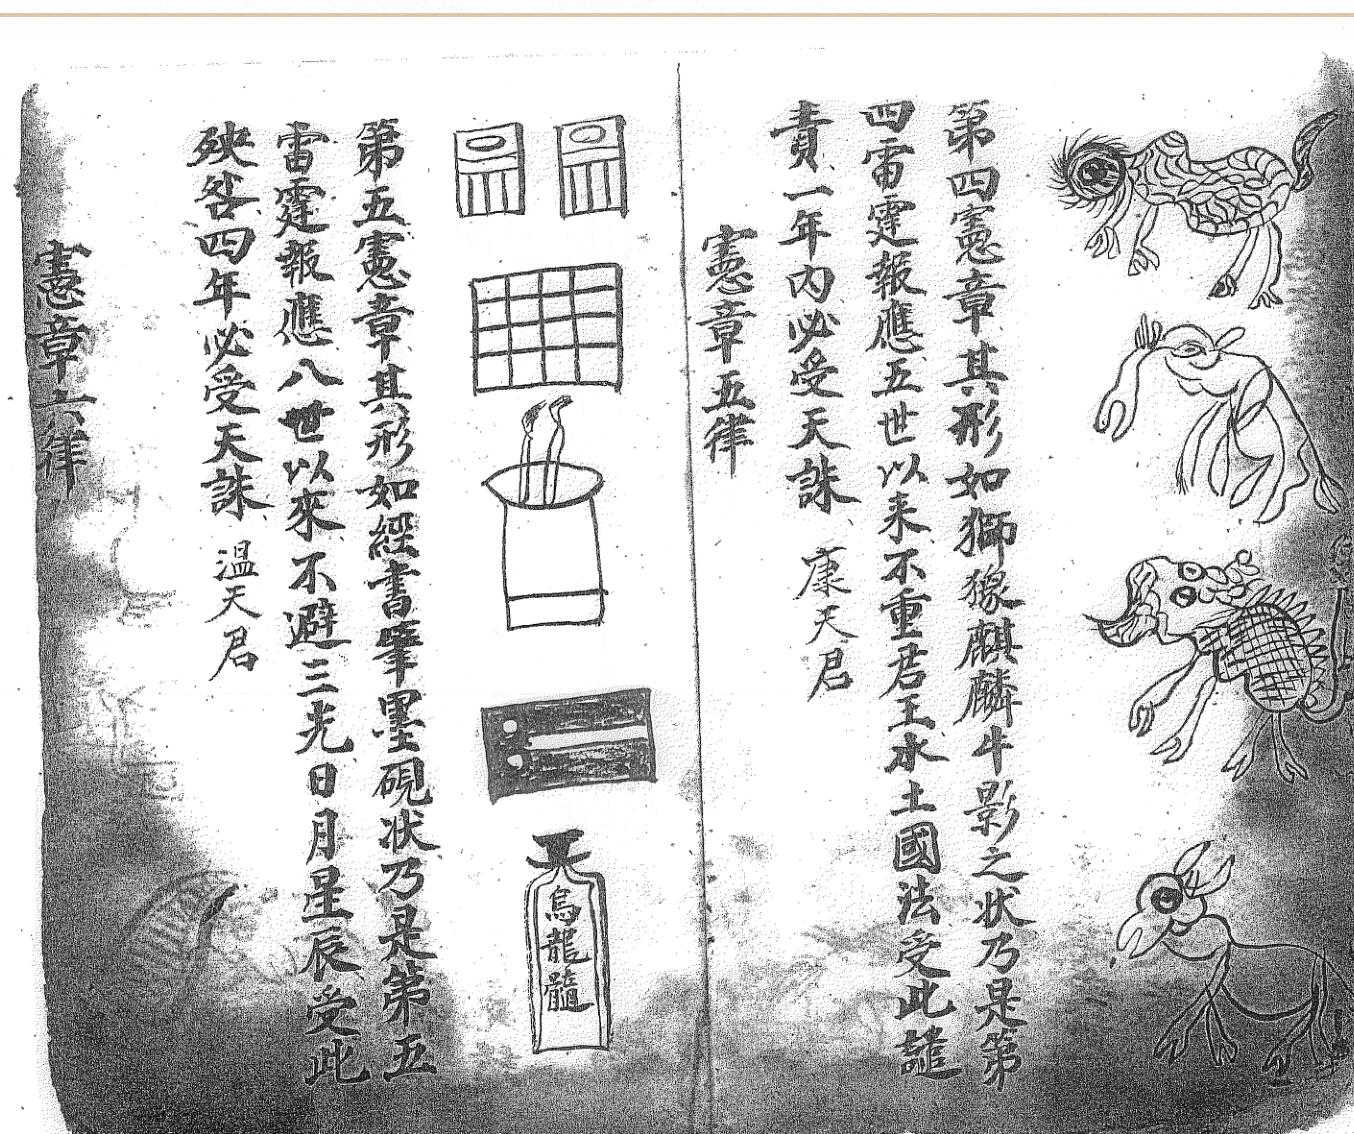 第四憲章其形如獅猭麒麟牛影之状乃是第
四雷霆報應五世以来不重君王水土國法受此譴
責一年內必受天誅 康天君
憲章五律
烏龍髓
第五憲章其形如經書筆墨硯状乃是第五
雷霆報應八世以來不避三光日月星辰受此
殃咎四年必受天誅 温天君
憲章六律